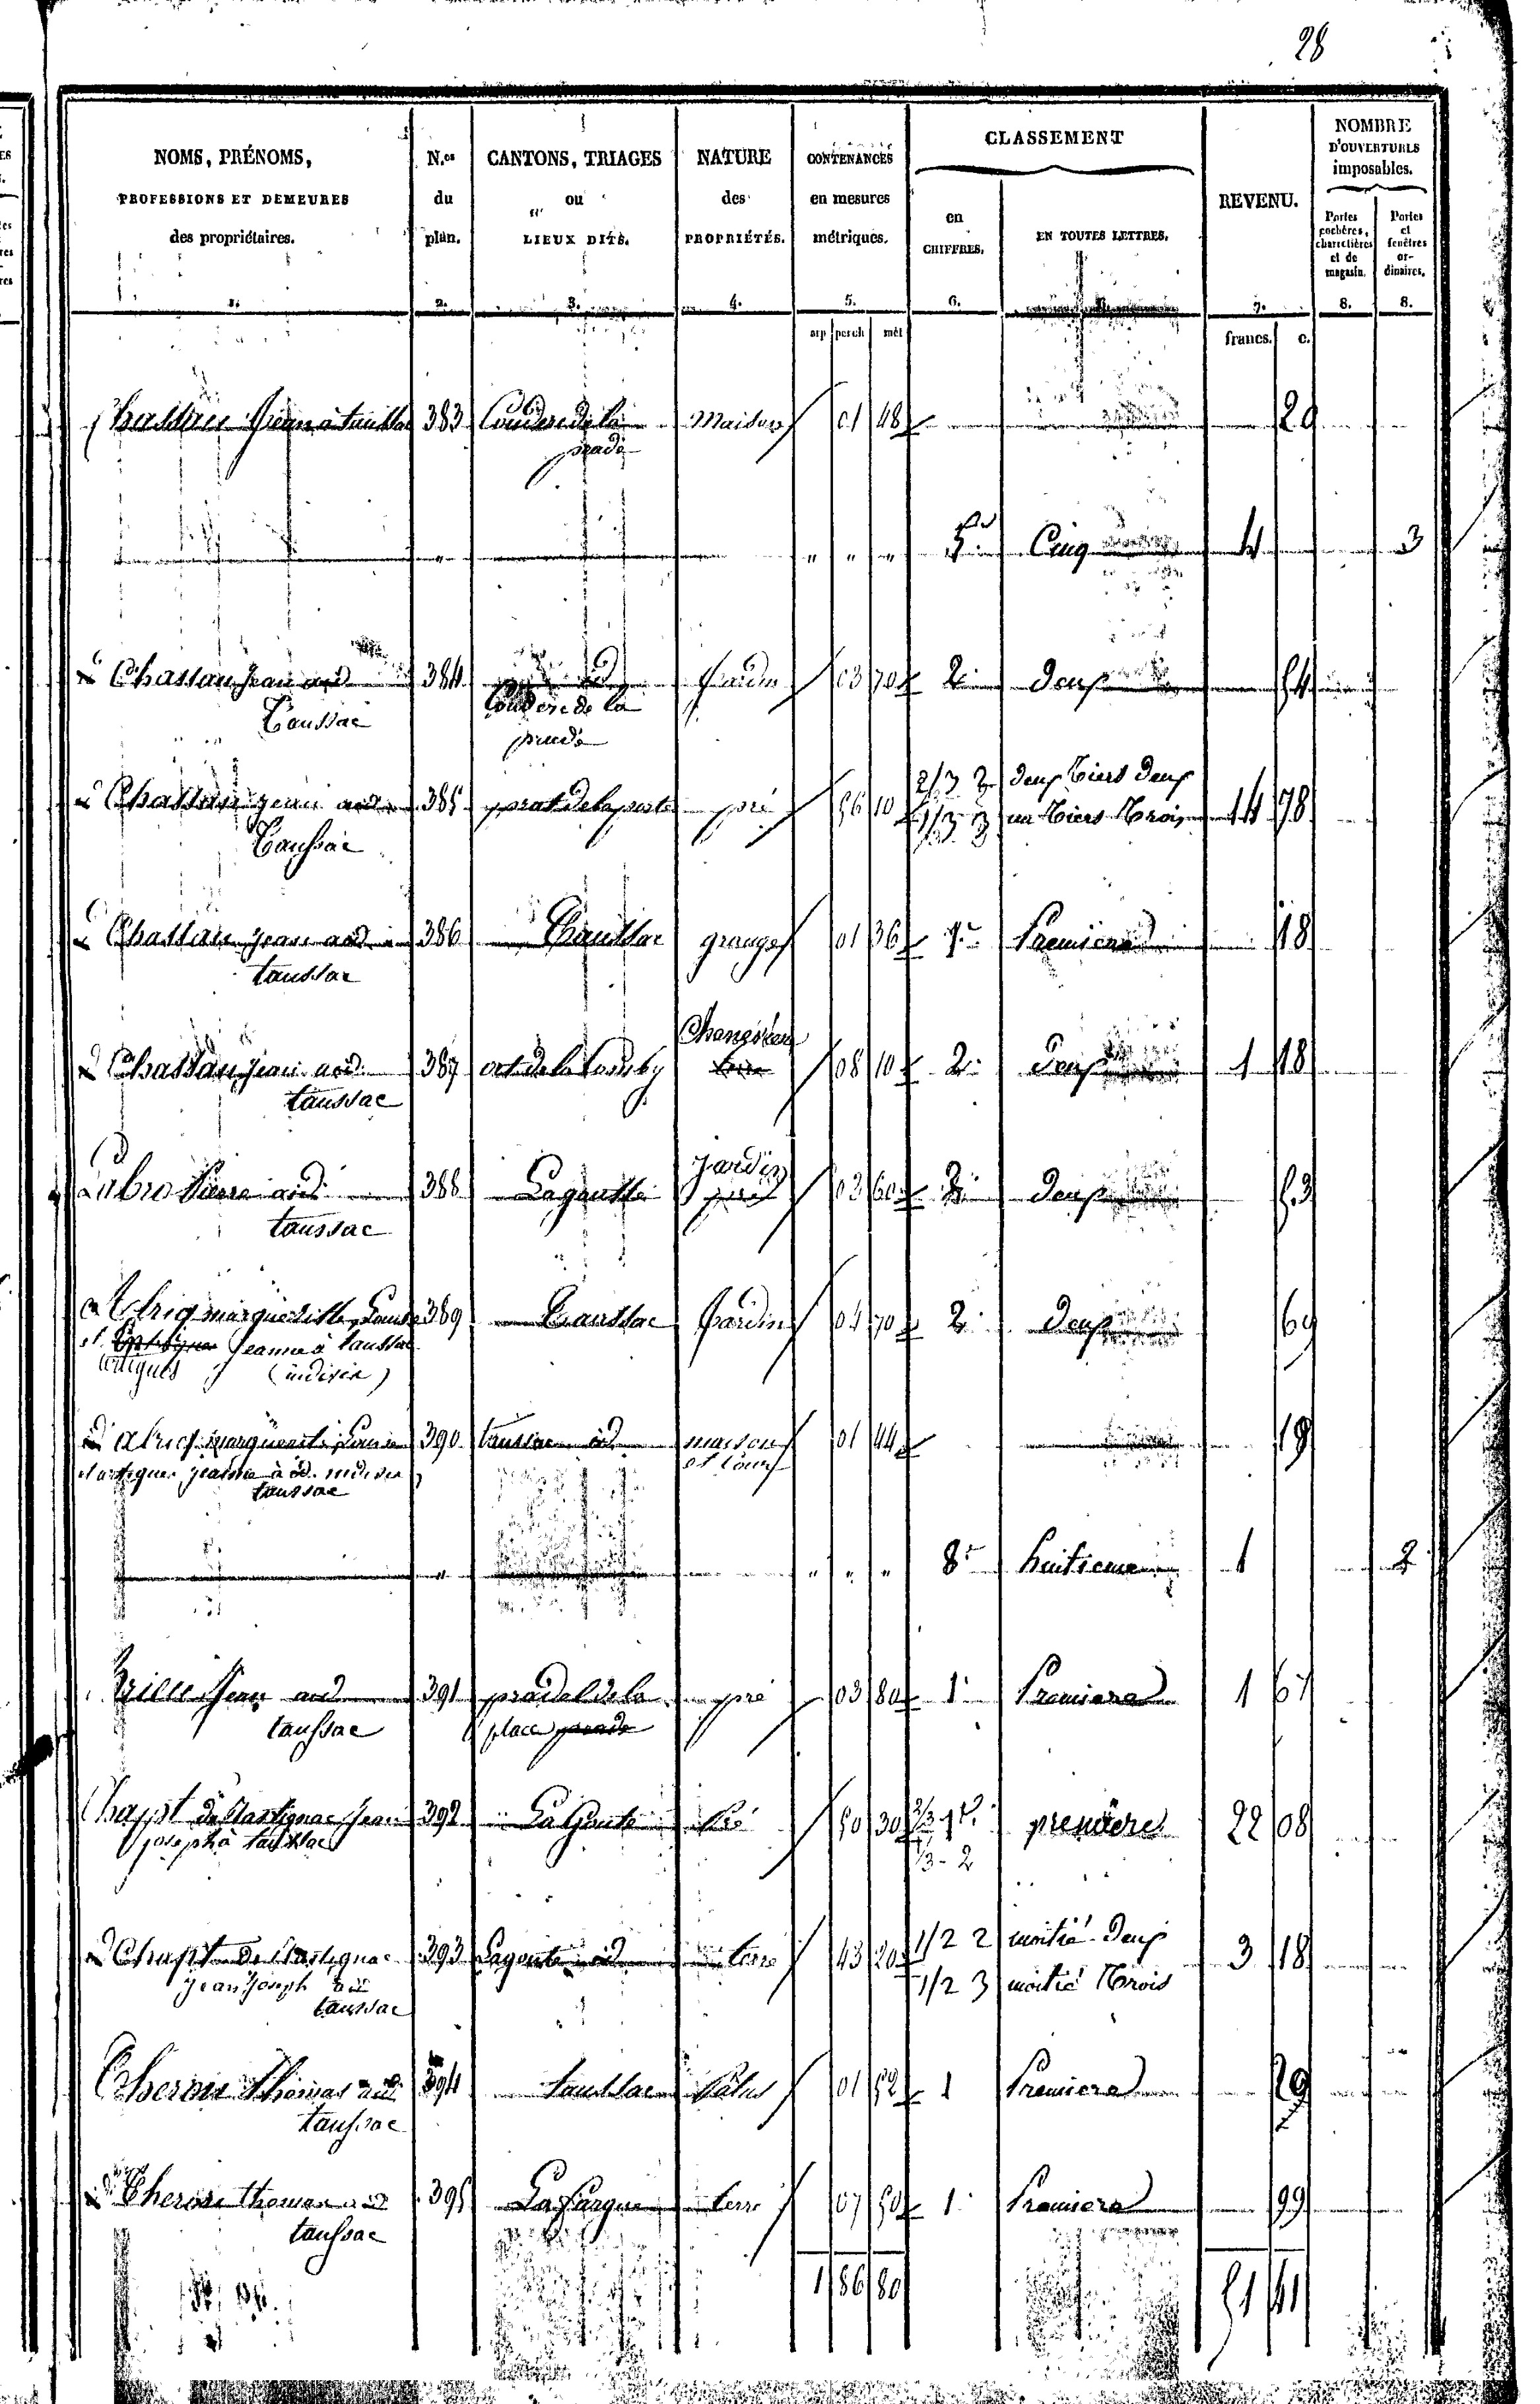 28
NOMS, PRÉNOMS, PROFESSIONS ET DEMEURES des propriétaires. 1.
N.os du plan. 2.
CANTONS, TRIAGES ou LIEUX DITS. 3.
NATURE des PROPRIÉTÉS. 4.
CONTENANCES en mesures métriques. 5.
CLASSEMENT
en CHIFFRES. 6.
EN TOUTES LETTRES.
REVENU. 7.
NOMBRE D'OUVERTURES imposables.
Portes cochères, charretières et de magasin. 8.
Portes et fenêtres ordinaires. 8.
arp perch mèt francs. c.
Jean à taussac 383 Couderc de la Maison 01 48 20
prade
" " " " 5e Cinq 4 3
Chassan Jean aud 384 id Jardin 03 70 2 deux 54
Taussac Couderc de la
prade
2/3 2 deux tiers deux
Chassan Jean aud 385 prat de la porte pré 56 10 1/3 3 un tiers trois 14 78
Taussac
Chassan Jean aud 386 Taussac grange 01 36 1re Premiere 18
taussac
Cheneviere
Chassan Jean aud 387 ort de la Comby terre 08 10 2 deux 1 18
taussac
Jardin
Labro Pierre aud 388 Lagoutte pré 03 60 2 deux 53
taussac
marguerite Louise 389 Taussac Jardin 04 70 2 deux 69
et Jeanne à taussac
artigues (indivis)
marguerite Louise 390 taussac id maison 01 44 19
et artigues Jeanne à id. indivis et cour
taussac
" " " " 8e huitieme 1 2
Jean aud 391 pradel de la pré 03 80 1 Premiere 1 67
taussac place prade
Chapt de Rastignac Jean 392 La Goutte Pré 50 30 2/3 1re premiere 22 08
joseph à taussac 1/3 - 2
Chapt de Rastignac 393 Lagoutte id terre 43 20 1/2 2 moitié deux 3 18
Jean Joseph aud 1/2 3 moitié trois
taussac
Thomas aud 394 taussac Patus 01 52 1 Premiere 29
taussac
thomas aud 395 Lafargue terre 07 50 1 Premiere 99
taussac
1 86 80 51 41